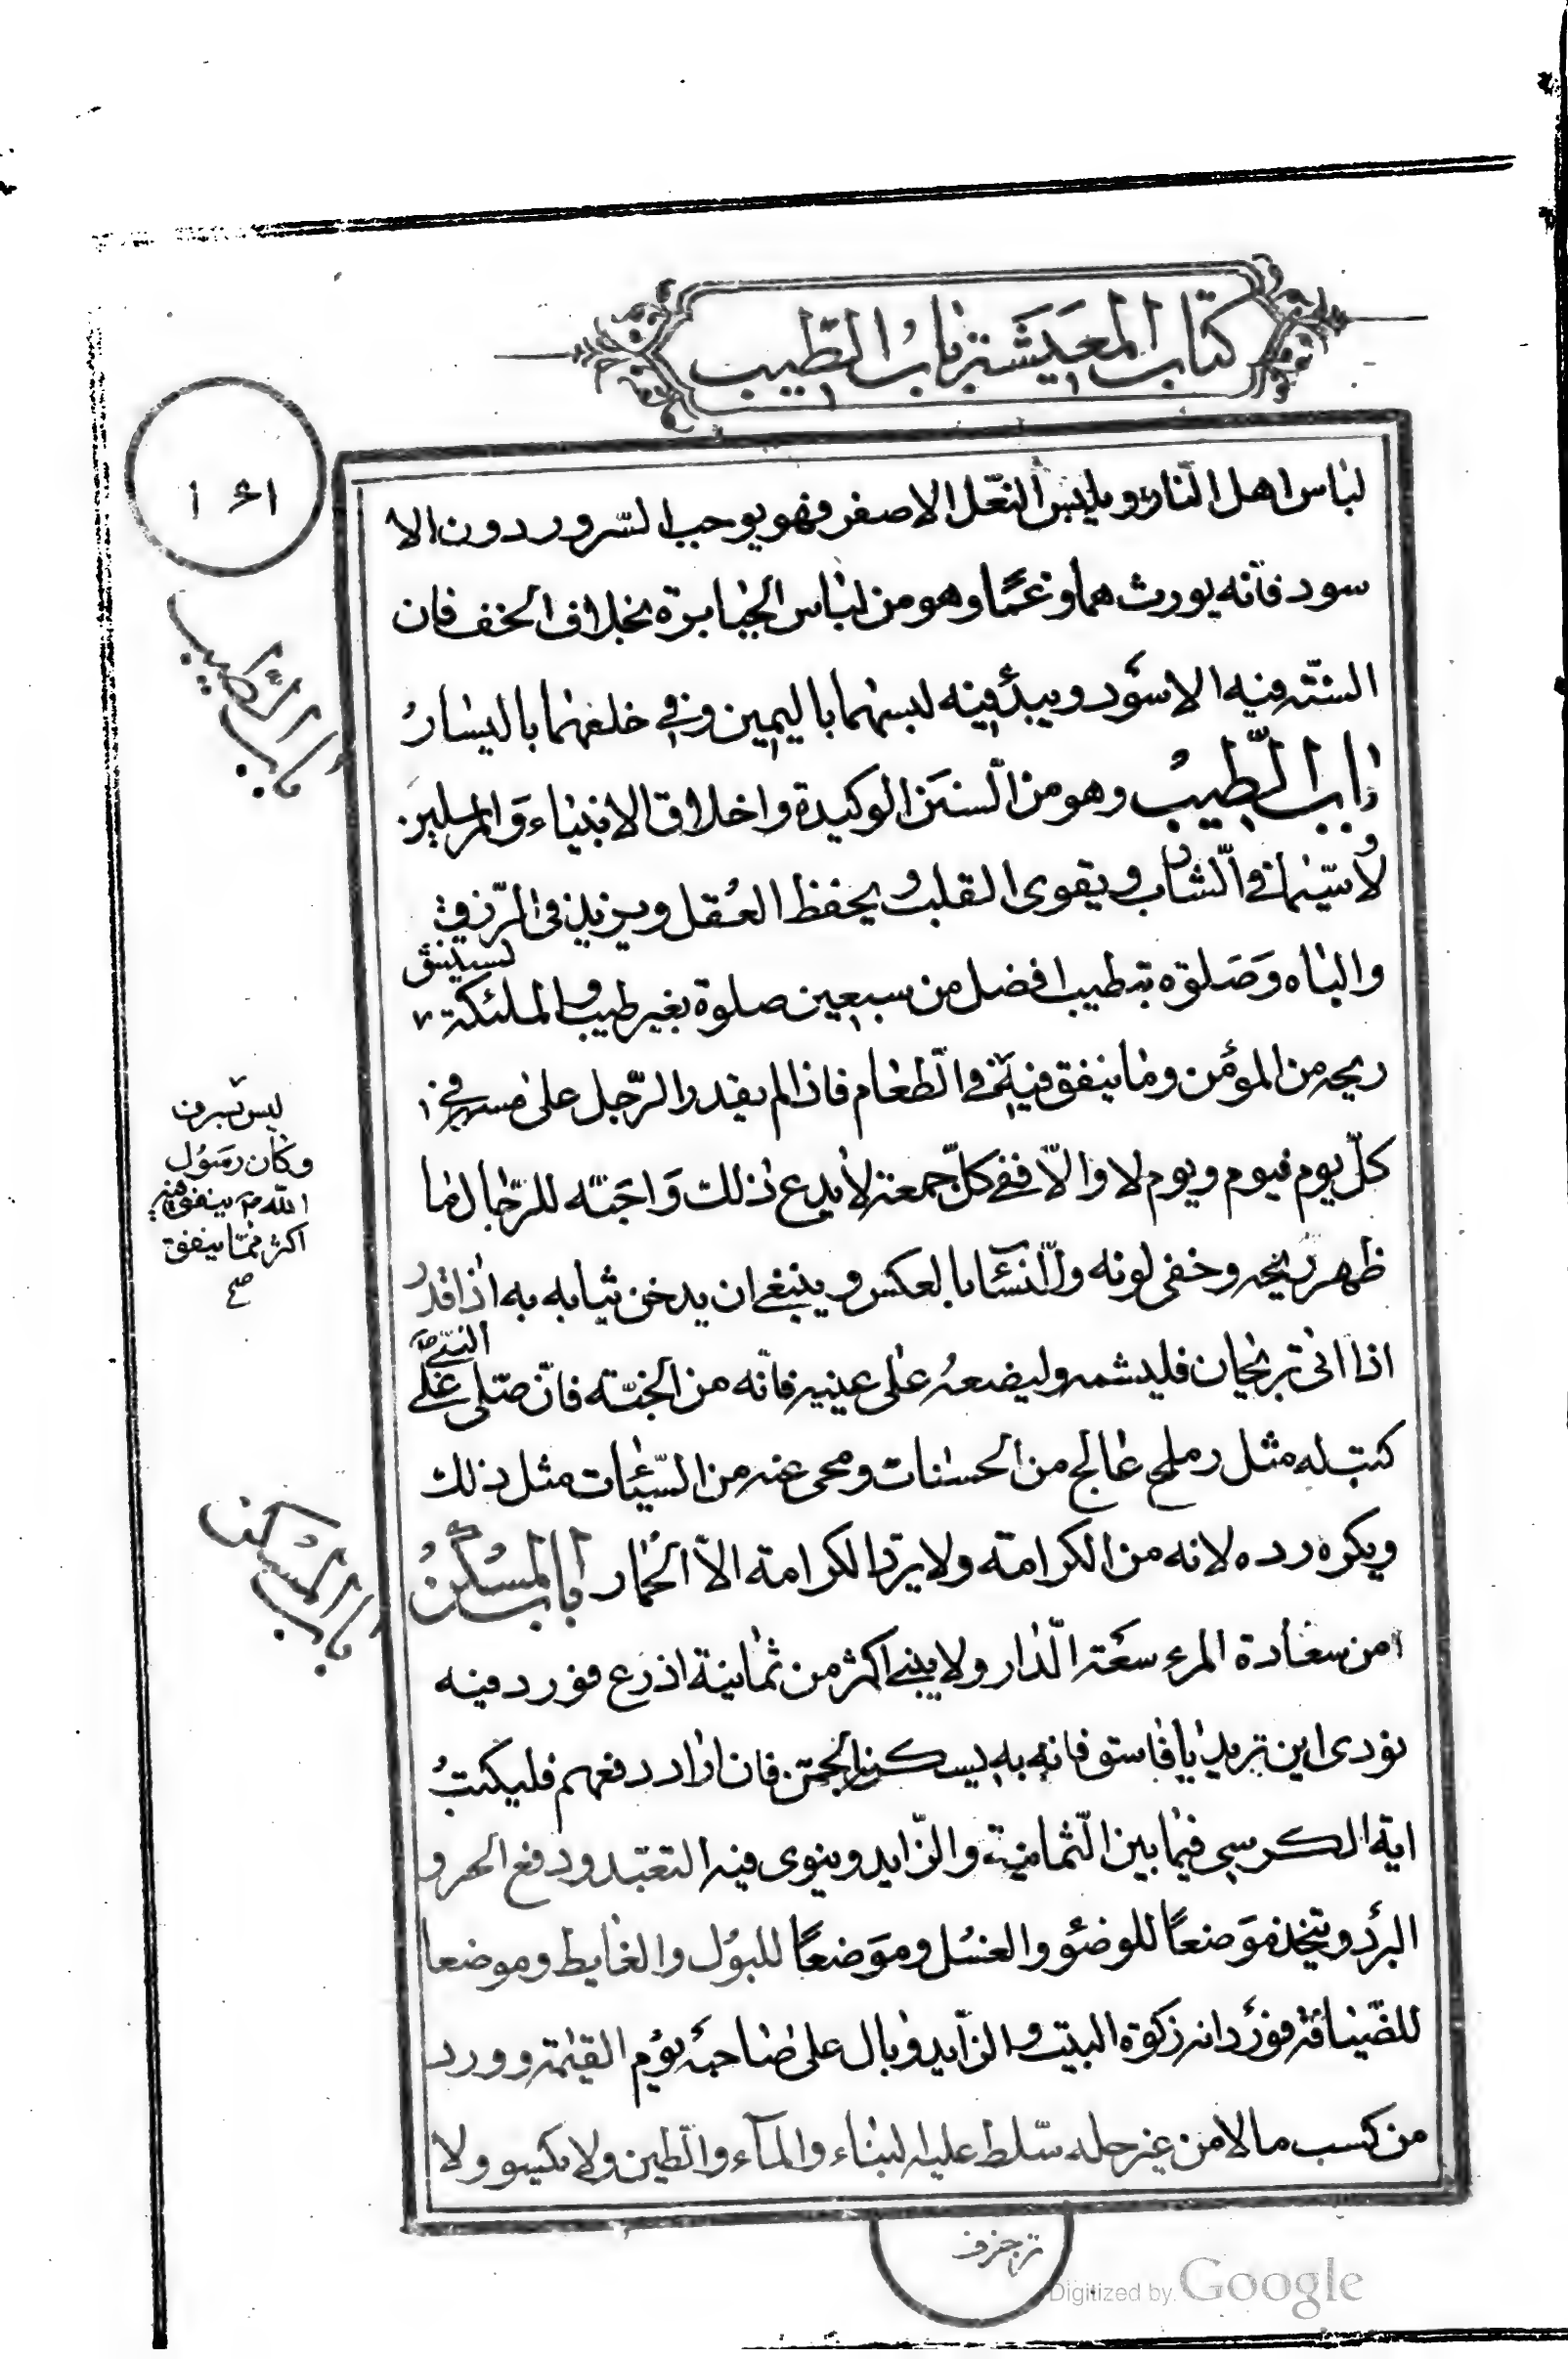 كتاب المعيشة باب الطيب
١٤١
لباس اهل النار ويلبس النعل الاصفر فهو يوجب السرور دون الا
سود فانه يورث هما وغمًا وهو من لباس الجبابرة بخلاف الخف فان
السنة فيه الاسود ويبدء فيه لبسهما باليمين وفي خلعهما باليسار
باب الطيب وهو من السنن الوكيدة واخلاق الانبياء والمرسلين
لا سيما في الشارب ويقوى القلب ويحفظ العقل ويزيد في الرزق
والباه وصلوة بتطيب افضل من سبعين صلوة بغير طيب والملئكة
تستنشق
ريحه من المؤمن وما ينفق فيه في الطعام فاذا لم يقدر الرجل على
كلّ يوم فيوم ويوم لا والّا ففي كلّ جمعة لا يدع ذلك واحبه للرجال ما
ظهر ريحه وخفى لونه وللنسآء بالعكس وينبغي ان يدخن ثيابه به اذا قدر
اذا اتى بريحان فليشمه وليضعه على عينيه فانّه من الجنّة فان صلى على
النبي ص
كتب له مثل رمل عالج من الحسنات ومحى عنه من السيّئات مثل ذلك
ويكره رده لانه من الكرامة ولا يرد الكرامة الّا الحمار باب المسكن
من سعادة المرء سعة الدار ولا يبنى اكثر من ثمانية اذرع فورد فيه
نودى اين تريد يا فاسق فانه به يسكن الجن فان اراد دفعهم فليكتب
اية الكرسي فيما بين الثمانية والزايد وينوى فيه التعبد ودفع الحر و
البرد ويتخذ موضعًا للوضوء والغسل وموضعًا للبول والغايط وموضعا
للضيافة فورد انه زكوة البيت والزايد وبال على صاحبه يوم القيٰمة وورد
من كسب مالا من غير حله سلط عليه البناء والمآء والطين ولا يكسو ولا
باب الطيب
ليس بسرف
وكان رسول
الله ص ينفق فيه
اكثر مما ينفق
صح
باب المسكن
يزخرف
Digitized by Google